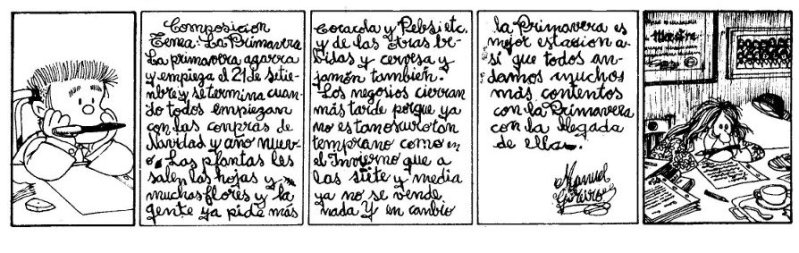 Composicion
Temea: La Primavera
La primavera agarra
y empieza el 21 de setie-
nbre y se termina cuan-
do todos empiezan
con las conpras de
Navidad y año nuev-
o. Las plantas les
salen las hojas y
muchas flores y la
gente ya pide más
Cocacola y Pebsi etc.
y de las otras be-
bidas y cervesa y
jamón también.
Los negosios cierran
más tarde porque ya
no es tan oscuro tan
temprano como en
el Invierno que a
las siete y media
ya no se vende
nada. Y en canbio
la Primavera es
mejor estacion a-
sí que todos an-
damos muchos
más contentos
con la Primavera
con la llegada
de ella.
Manuel
Goreiro
Maestra